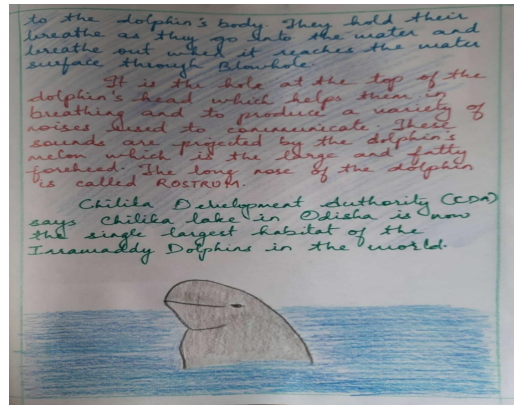 to the dolphin's body. They hold their
breathe as they go into the water and
breathe out when it reaches the water
surface through Blowhole.
It is the hole at the top of the
dolphin's head which helps them in
breathing and to produce a variety of
noises used to communicate. These
sounds are projected by the dolphin's
melon which is the large and fatty
forehead. The long nose of the dolphin
is called ROSTRUM.
Chilika Development Authority (CDA)
says Chilika lake in Odisha is now
the single largest habitat of the
Irrawaddy Dolphins in the world.